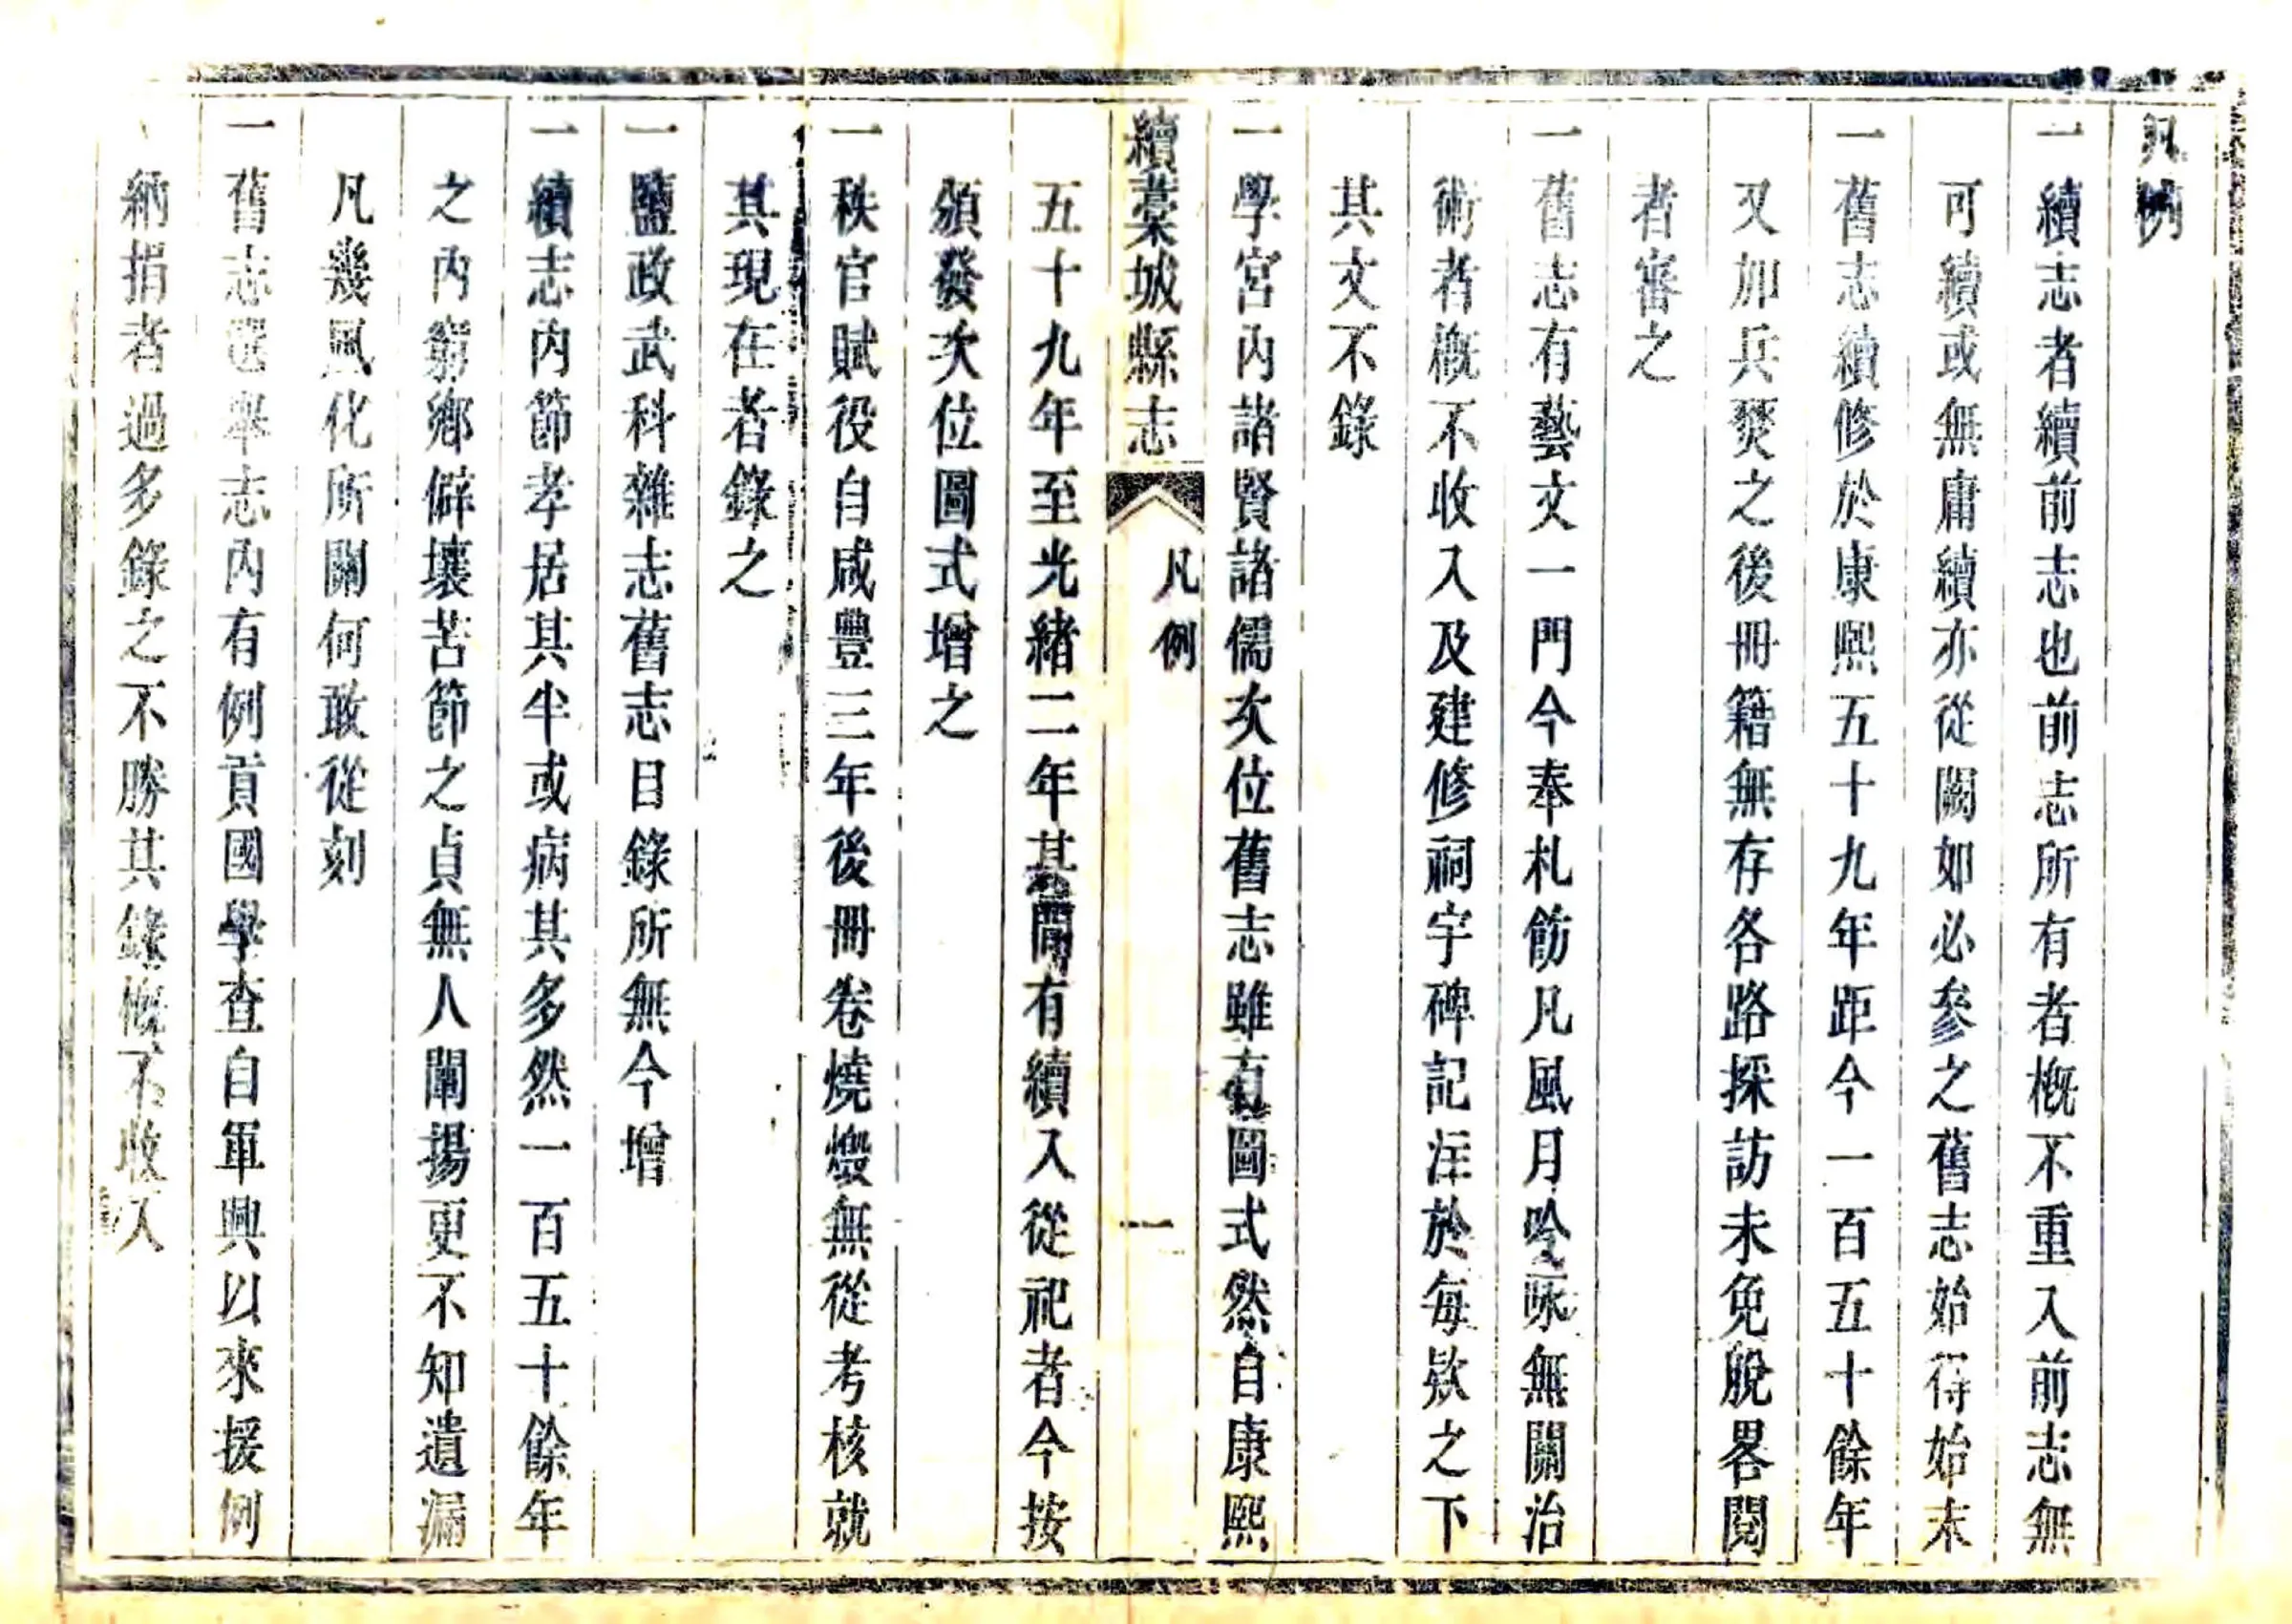 凡例
一續志者續前志也前志所有者槪不重入前志無
可續或無庸續亦從闕如必參之舊志始得始末
一舊志續修於康熙五十九年距今一百五十餘年
又加兵燹之後冊籍無存各路採訪未免脫畧閱
者審之
一舊志有藝文一門今奉札飭凡風月吟咏無關治
術者槪不收入及建修祠宇碑記注於每欵之下
其文不錄
一學宮內諸賢諸儒次位舊志雖有圖式然自康熙
續藁城縣志
凡例
一
五十九年至光緒二年其間有續入從祀者今按
頒發次位圖式增之
一秩官賦役自咸豐三年後冊卷燒燬無從考核就
其現在者錄之
一鹽政武科雜志舊志目錄所無今增
一續志內節孝居其半或病其多然一百五十餘年
之內窮鄉僻壤苦節之貞無人闡揚更不知遺漏
凡幾風化所關何敢從刻
一舊志選舉志內有例貢國學查自軍興以來援例
納捐者過多錄之不勝其錄槪不收入